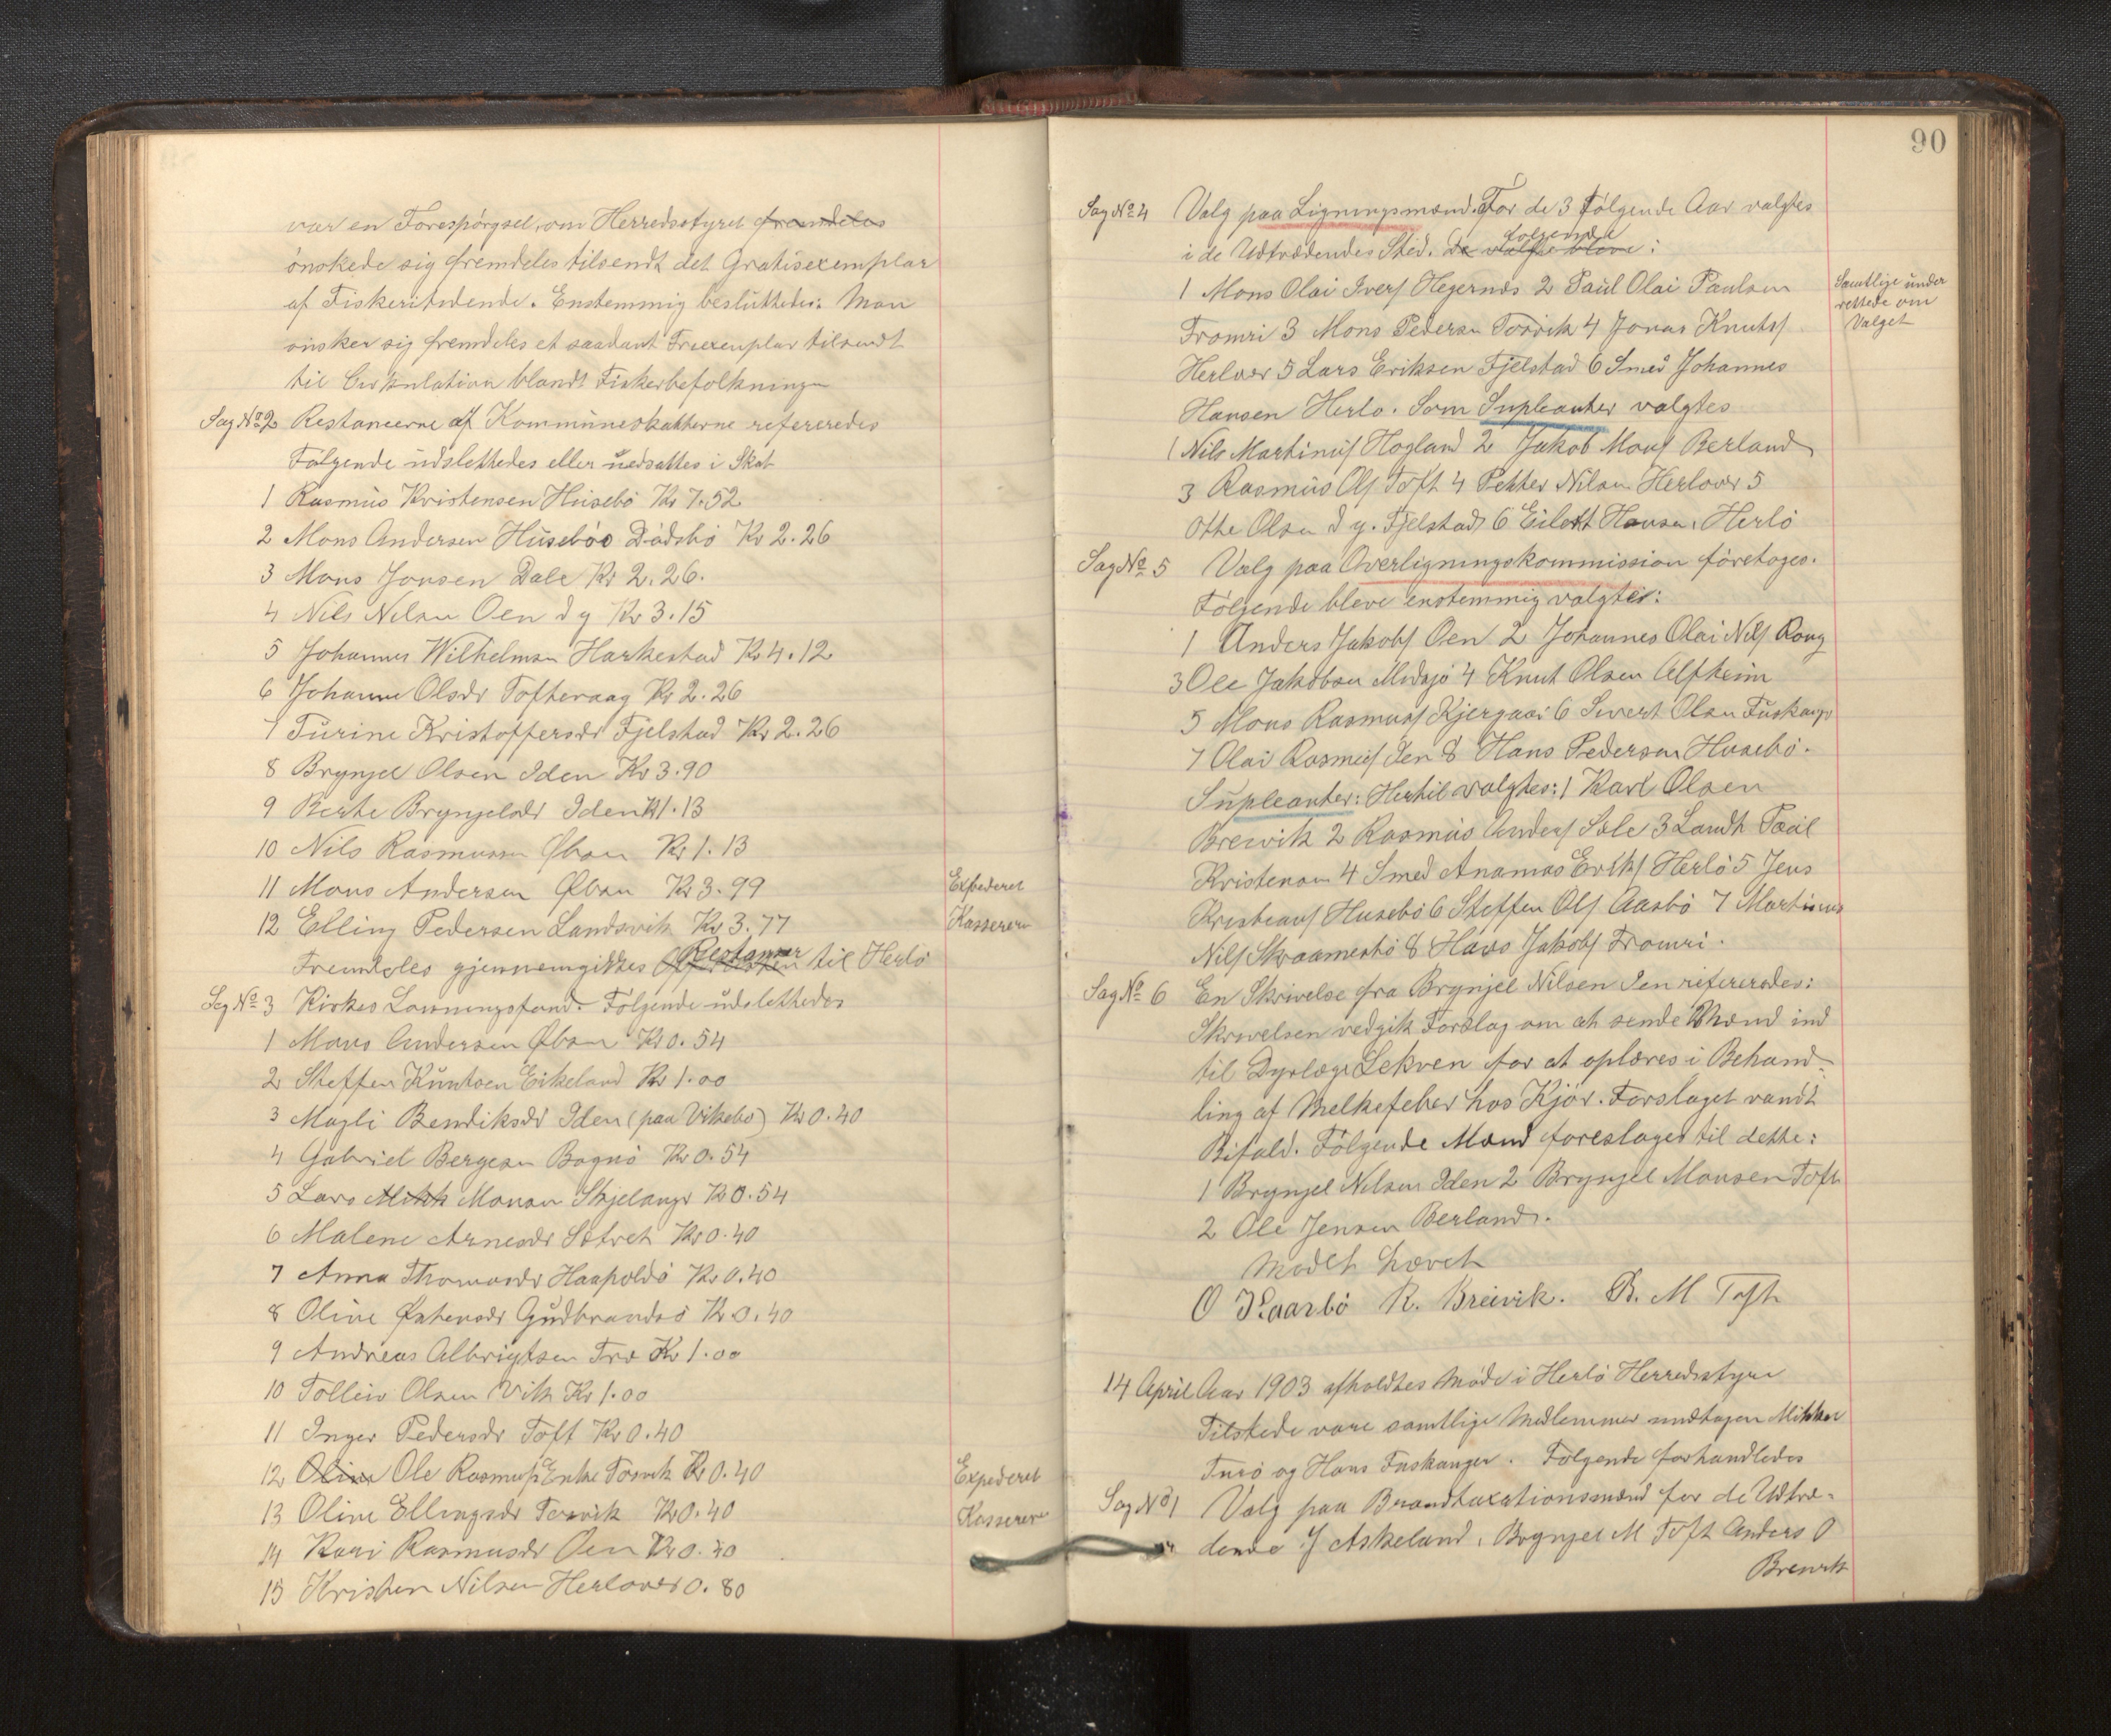 var en Forespörgsel, om Herredsstyret fremdeles
önskede sig fremdeles tilsendt det Gratisexemplar
af Fiskeritidende. Enstemmig besluttedes: Man
önsker sig fremdeles et saadant Friexemplar tilsendt
til Cirkulation blandt Fiskerbefolkningen
Sag No 2 Restancerne af Kommuneskatterne refereredes
Fölgende udslettedes eller nedsattes i Skat
1 Rasmus Kristensen Husebö Kr 7.52
2 Mons Andersen Husebö Kr 2.26
3 Mons Jonsen Dale Kr 2.26.
4 Nils Nilsen Oen d y Kr 3.15
5 Johannes Wilhelmsen Harkestad Kr 4.12
6 Johanne Olsdr Tofteraag Kr 2.26
7 Turine Kristoffersdr Fjelstad Kr 2.26
8 Brynjel Olsen Iden Kr 3.90
9 Berte Brynjelsdr Iden Kr 1.13
10 Nils Rasmussen Øbsen Kr 1.13
11 Mons Andersen Øbsen Kr 3.99
Expederet
12 Elling Pedersen Landsvik Kr 3.77
Kassereren
Fremdeles gjennemgikkes Restancer til Herlö
Sag No 3 Kirkes Lönningsfond. Fölgende udslettedes
1 Mons Andersen Øbsen Kr 0.54
2 Steffen Knutsen Eikeland Kr 1.00
3 Magli Bendiksdr Iden (paa Vikebö) Kr 0.40
4 Gabriel Bergesen Bognö Kr 0.54
5 Lars Mikk Monsen Skjelanger Kr 0.54
6 Malene Arnesdr Sætret Kr 0.40
7 Anna Thomasdr Haapoldö Kr 0.40
8 Oline Østensdr Gudbrandsö Kr 0.40
9 Andreas Albrigtsen Træ Kr 1.00
10 Tolleiv Olsen Vik Kr 1.00
11 Inger Pedersdr Toft Kr 0.40
12 Oline Ole Rasmus Enke Torsvik Kr 0.40
Expederet
13 Oline Ellingsdr Torsvik Kr 0.40
Kassereren
14 Kari Rasmusdr Oen Kr 0.40
15 Kristen Nilsen Herlover 0.80
90
Sag No 4 Valg paa Ligningsmænd. For de 3 fölgende Aar valgtes
fölgende
i de Udtrædendes Sted. De valgte bleve:
1 Mons Olai Ivers Hegernes 2 Paul Olai Paulsen
Samtlige under
rettede om
Valget
Fromri 3 Mons Pedersen Torsvik 4 Jonas Knuts
Herlover 5 Lars Eriksen Fjelstad 6 Smed Johannes
Hansen Herlö. Som Supleanter valgtes
1 Nils Martinus Hogland 2 Jakob Mons Berland
3 Rasmus Ols Toft 4 Petter Nilsen Herlover 5
Otte Olsen d y. Fjelstad 6 Eilert Hansen, Herlö
Sag No 5 Valg paa Overligningskommission företoges.
Fölgende bleve enstemmig valgte:
1 Anders Jakobs Oen 2 Johannes Olai Nils Rong
3 Ole Jakobsen Midsjö 4 Knut Olsen Alfheim
5 Mons Rasmus Kjergaar 6 Sivert Olsen Fuskanger
7 Olai Rasmus Oen 8 Hans Pedersen Husebö.
Supleanter: Hertil valgtes: 1 Karl Olsen
Breivik 2 Rasmus Anders Sæle 3 Landh Paul
Kristensen 4 Smed Ananias Eriks Herlö 5 Jens
Kristians Husebö 6 Steffen Ols Aasbö 7 Martinus
Nils Skraamestö 8 Hans Jakobs Fromri.
Sag No 6 En Skrivelse fra Brynjel Nilsen Iden refereredes:
Skrivelsen vedgik Forslag om at sende Mænd ind
til Dyrlæge Lekven for at oplæres i Behand-
ling af Melkefeber hos Kjör. Forslaget vandt
Bifald. Fölgende Mænd foresloges til dette:
1 Brynjel Nilsen Iden 2 Brynjel Monsen Toft
2 Ole Jensen Berland.
Mödet hævet
O Kaarbö R. Breivik. B. M Toft
14 April Aar 1903 afholdtes Möde i Herlö Herredsstyre
Tilstede vare samtlige Medlemmer undtagen Mikkel
Turö og Hans Fuskanger. Fölgende forhandledes
Sag No 1 Valg paa Brandtaxationsmænd for de Udtræ-
dende J Askeland, Brynjel M Toft Anders O
Breivik